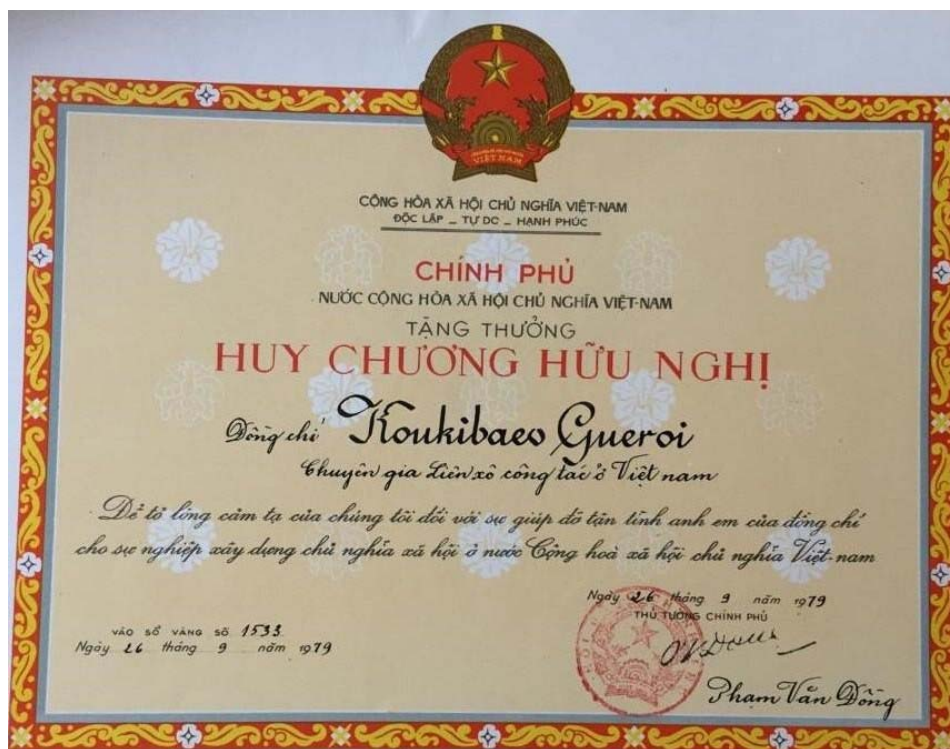 VIỆT NAM
CỘNG HÒA XÃ HỘI CHỦ NGHĨA VIỆT-NAM
ĐỘC LẬP _ TỰ DC _ HẠNH PHÚC
CHÍNH PHỦ
NƯỚC CỘNG HÒA XÃ HỘI CHỦ NGHĨA VIỆT-NAM
TẶNG THƯỞNG
HUY CHƯƠNG HỮU NGHỊ
Đồng chí Koukibaeo Gueroi
Chuyên gia Liên xô công tác ở Việt nam
Để tỏ lòng cảm tạ của chúng tôi đối với sự giúp đỡ tận tình anh em của đồng chí
cho sự nghiệp xây dựng chủ nghĩa xã hội ở nước Cộng hoà xã hội chủ nghĩa Việt-nam
Ngày 26 tháng 9 năm 1979
THỦ TƯỚNG CHÍNH PHỦ
VÀO SỔ VÀNG SỐ 1533
Ngày 26 tháng 9 năm 1979
Phạm Văn Đồng